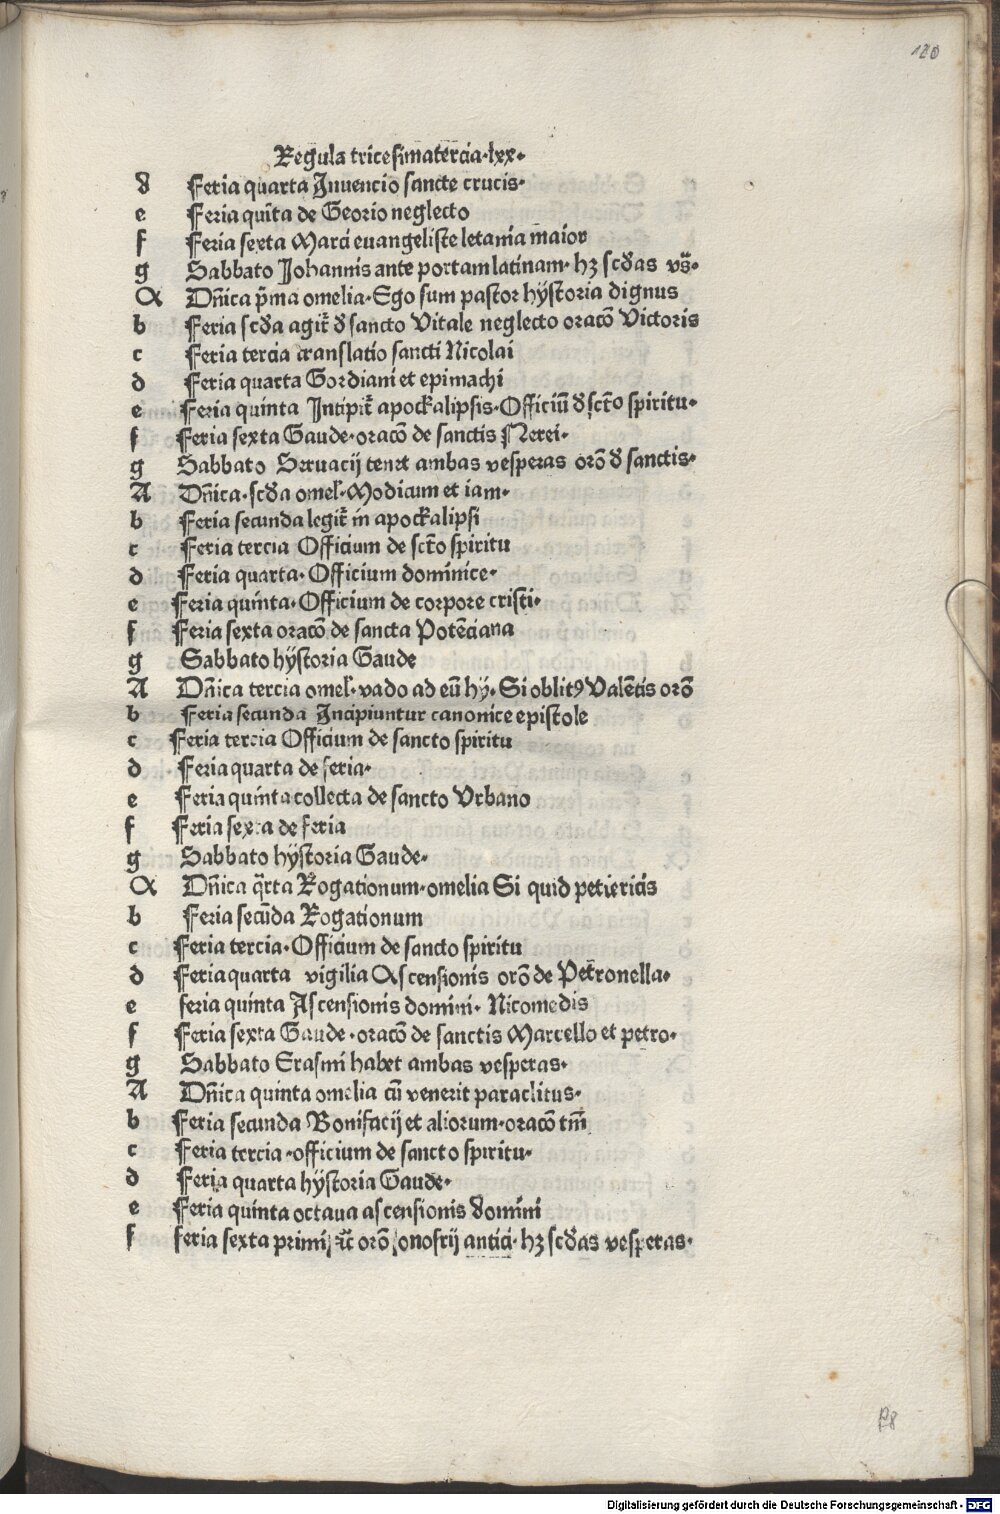 120
Regula tricesimatercia·lxx·
d Feria quarta Inuencio sancte crucis·
e Feria quīta de Georio neglecto
f Feria sexta Marci euangeliste letania maior
g Sabbato Johannis ante portam latinam· hꝫ scd̄as vs̄·
A Dn̄ica p̄ma omelia· Ego sum pastor hystoria dignus
b Feria scd̄a agit̄ d̄ sancto Vitale neglecto oracō Victoris
c Feria tercia translatio sancti Nicolai
d Feria quarta Gordiani et epimachi
e Feria quinta Intipit̄ apockalipsis· Officiū d̄ sct̄o spiritu·
f Feria sexta Gaude· oracō de sanctis Nerei·
g Sabbato Seruacij tenet ambas vesperas orō d̄ sanctis·
A Dn̄ica· scd̄a omel̄· Modicum et iam·
b Feria secunda legit̄ in apockalipsi
c Feria tercia Officium de sct̄o spiritu
d Feria quarta· Officium dominice·
e Feria quinta· Officium de corpore cristi·
f Feria sexta oracō de sancta Potēciana
g Sabbato hystoria Gaude
A Dn̄ica tercia omel̄· vado ad eū hy· Si oblitꝰ Valētis orō
b Feria secunda Incipiuntur canonice epistole
c Feria tercia Officium de sancto spiritu
d Feria quarta de feria·
e Feria quinta collecta de sancto Vrbano
f Feria sexta de feria
g Sabbato hystoria Gaude·
A Dn̄ica q̄rta Rogationum· omelia Si quid petiericis
b Feria secūda Rogationum
c Feria tercia· Officium de sancto spiritu
d Feria quarta vigilia Ascensionis orō de Pet̄ronella·
e feria quinta Ascensionis domini· Nicomedis
f Feria sexta Gaude· oracō de sanctis Marcello et petro·
g Sabbato Erasmi habet ambas vesperas·
A Dn̄ica quinta omelia cū venerit paraclitus·
b Feria secunda Bonifacij et aliorum· oracō tm̄
c Feria tercia· officium de sancto spiritu·
d Feria quarta hystoria Gaude·
e Feria quinta octaua ascensionis domini
f feria sexta primi orō onofrij antici· hꝫ scd̄as vesperas·
P8
Digitalisierung gefördert durch die Deutsche Forschungsgemeinschaft - DFG